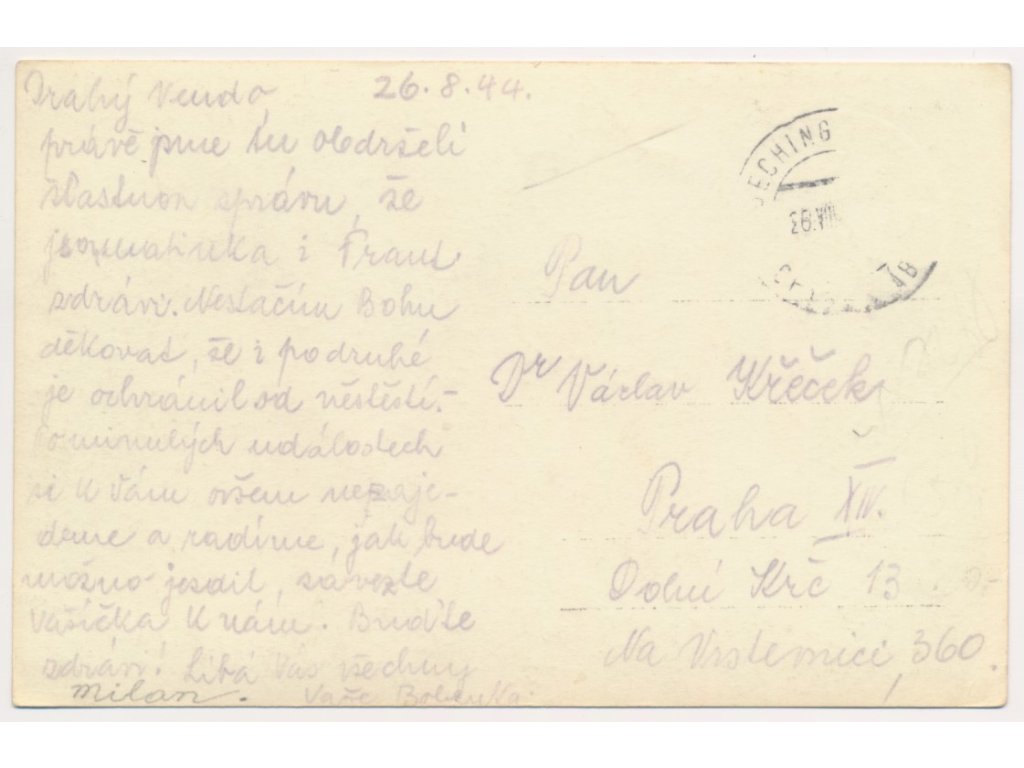 Drahý Vendo, 26.8.44.
právě jsme tu obdrželi
šťastnou správu, že
jsou matinka i Frant
zdrávi. Nestačím Bohu
děkovat, že i podruhé
je ochránil od něstěstí.-
Po minulých událostech
si k Vám ovšem nezaje-
deme a radíme, jak bude
možno jezdit, zavezte
Vašíčka k nám. Buďte
zdrávi! Líbá Vás všechny
Milan. Vaše Boženka
ECHING
26.VIII
Pan
Dr Václav Křeček
Praha XIV.
Dolní Krč 13
Na Vrstevnici, 360.